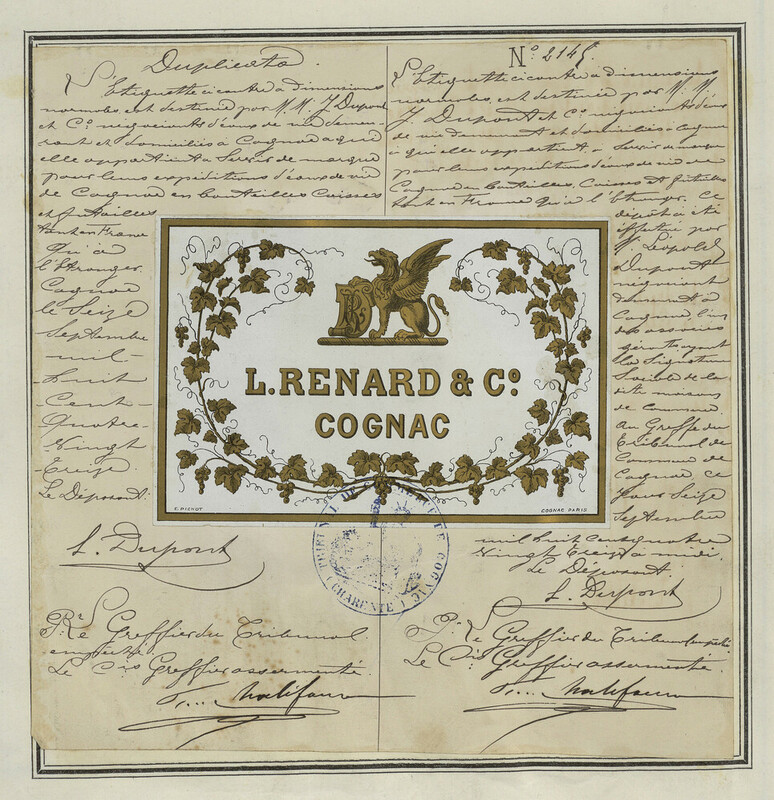 Duplicata.
L'Etiquette ci contre à dimensions
normales est destinée par M.M. J Dupont
et Cº négociants d'eaux de vie demeu-
rant et domiciliés à Cognac à qui
elle appartient à Servir de marque
pour leurs expéditions d'eaux de vie
de Cognac en bouteilles Caisses
et futailles
tant en France
qu'à
l'Etranger.
Cognac
le Seize
Septembre
mil-
huit
Cent
Quatre-
Vingt
Treize.
Le Déposant.
L. Dupont
Pr Le Greffier du Tribunal
empêché
Le Cis Greffier assermenté.
Nº 214
L'Etiquette ci contre à dimensions
normales est destinée par M.M.
J Dupont et Cº négociants d'eaux
de vie demeurant et domiciliés à Cognac
à qui elle appartient à Servir de marque
pour leurs expéditions d'eaux de vie de
Cognac en bouteilles, Caisses et futailles
tant en France qu'à l'Etranger. Ce
dépôt a été
effectué par
M. Léopold
Dupont
négociant
demeurant à
Cognac l'un
des associés
gérants ayant
la Signature
Sociale de la
dite maison
de Commerce
Au Greffe du
Tribunal de
Commerce de
Cognac, ce
jour Seize
Septembre
mil huit cent quatre
Vingt Treize à midi.
Le Déposant.
L. Dupont
Pr Le Greffier du Tribunal empêché
Le Cis Greffier assermenté.
L. RENARD & Cº
COGNAC
C. PICHOT
COGNAC PARIS
TRIBUNAL DE COMMERCE DE COGNAC
(CHARENTE)